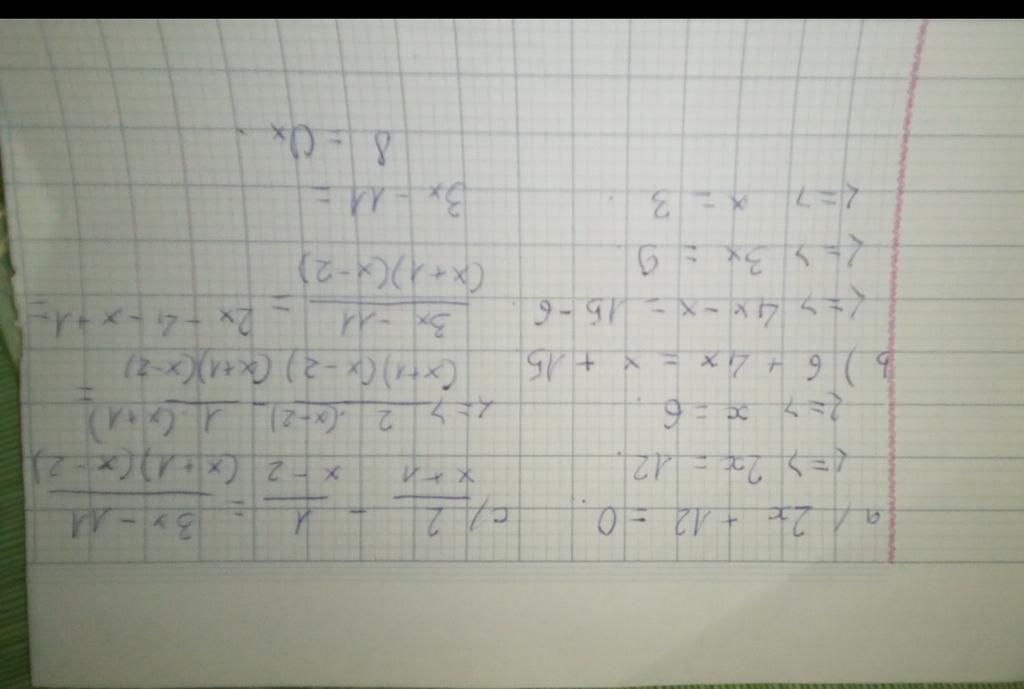 a / 2x + 12 = 0.
<=> 2x = 12.
<=> x = 6.
b) 6 + 4x = x + 15
<=> 4x - x = 15 - 6.
<=> 3x = 9.
<=> x = 3.
c / 2 / x + 1 - 1 / x - 2 = 3x - 11 / (x + 1)(x - 2)
<=> 2.(x-2) / (x+1)(x-2) - 1.(x+1) / (x+1)(x-2) =
3x - 11 / (x+1)(x-2) = 2x - 4 - x + 1 =
3x - 11 =